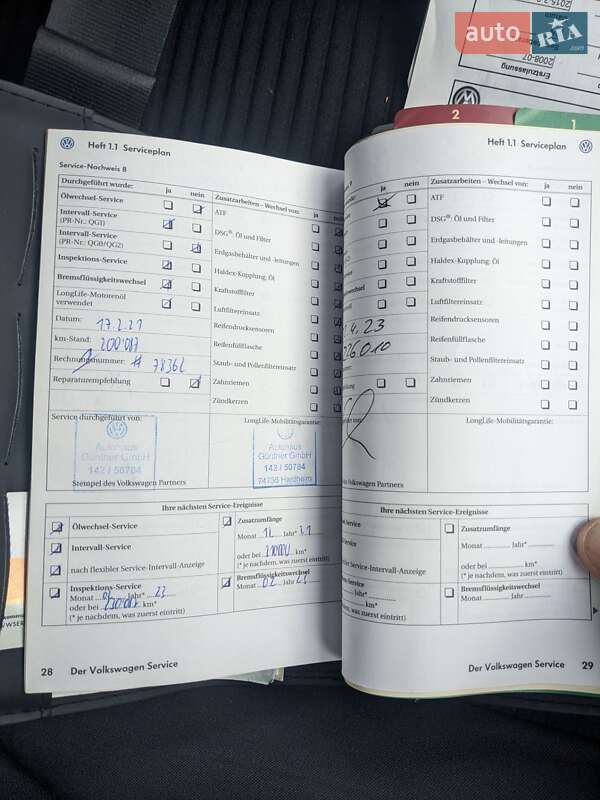 auto RIA.com
2015-2-2
2008-07
Erstzulassung
2
1
Heft 1.1 Serviceplan
Service-Nachweis 8
Durchgeführt wurde: ja nein
Ölwechsel-Service
Intervall-Service
(PR-Nr.: QG1)
Intervall-Service
(PR-Nr.: QG0/QG2)
Inspektions-Service
Bremsflüssigkeitswechsel
LongLife-Motorenöl
verwendet
Datum: 17.2.21
km-Stand: 200'017
Rechnungsnummer: # 78362
Reparaturempfehlung
Zusatzarbeiten – Wechsel von: ja nein
ATF
DSG®: Öl und Filter
Erdgasbehälter und -leitungen
Haldex-Kupplung: Öl
Kraftstofffilter
Luftfiltereinsatz
Reifendrucksensoren
Reifenfüllflasche
Staub- und Pollenfiltereinsatz
Zahnriemen
Zündkerzen
Service durchgeführt von:
Autohaus
Günther GmbH
142 / 50784
Stempel des Volkswagen Partners
LongLife-Mobilitätsgarantie:
Autohaus
Günther GmbH
142 / 50784
74736 Hardheim
Ihre nächsten Service-Ereignisse
Ölwechsel-Service
Intervall-Service
nach flexibler Service-Intervall-Anzeige
Inspektions-Service
Monat Jahr* 23
oder bei km*
(* je nachdem, was zuerst eintritt)
Zusatzumfänge
Monat Jahr*
oder bei km*
(* je nachdem, was zuerst eintritt)
Bremsflüssigkeitswechsel
Monat 02 Jahr 23
28 Der Volkswagen Service
Heft 1.1 Serviceplan
ja nein
Zusatzarbeiten – Wechsel von: ja nein
ATF
DSG®: Öl und Filter
Erdgasbehälter und -leitungen
Haldex-Kupplung: Öl
Kraftstofffilter
Luftfiltereinsatz
Reifendrucksensoren
Reifenfüllflasche
Staub- und Pollenfiltereinsatz
Zahnriemen
Zündkerzen
4.23
26010
LongLife-Mobilitätsgarantie:
Volkswagen Partners
Ihre nächsten Service-Ereignisse
Service
Service
flexibler Service-Intervall-Anzeige
Service
Jahr*
km*
nachdem, was zuerst eintritt)
Zusatzumfänge
Monat Jahr*
oder bei km*
(* je nachdem, was zuerst eintritt)
Bremsflüssigkeitswechsel
Monat Jahr
Der Volkswagen Service 29